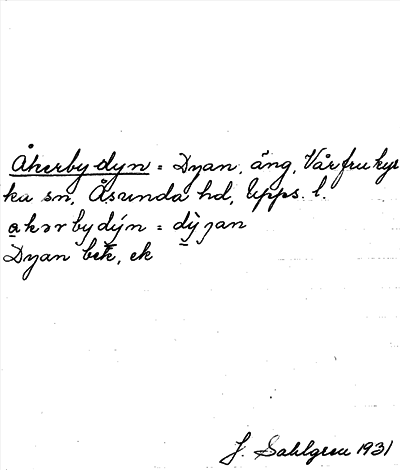 Åkerby dyn = Dyan, äng, Vårfrukyr
ka sn, Åsunda hd, Upps. l.
a̲kərbydýn = dỳ̲ȷan
Dyan bek, ek
J. Sahlgren 1931